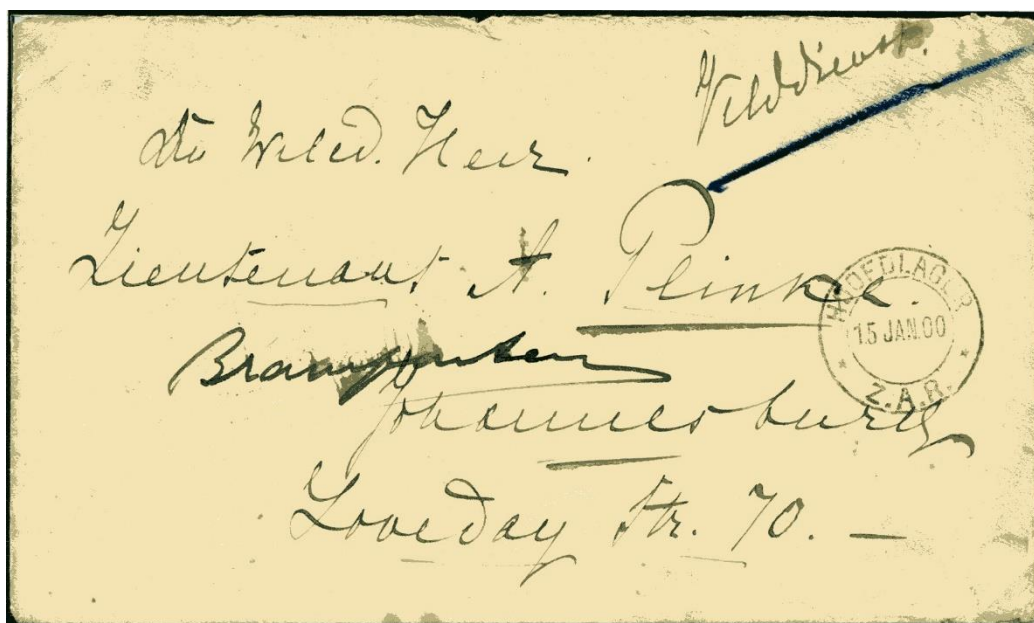 Velddienst.
Heer
Lieutenant A. Plinke.
Braamfontein
Johannesburg
Loveday Str. 70. —
HOOFDLAGER
15 JAN.00
Z.A.R.